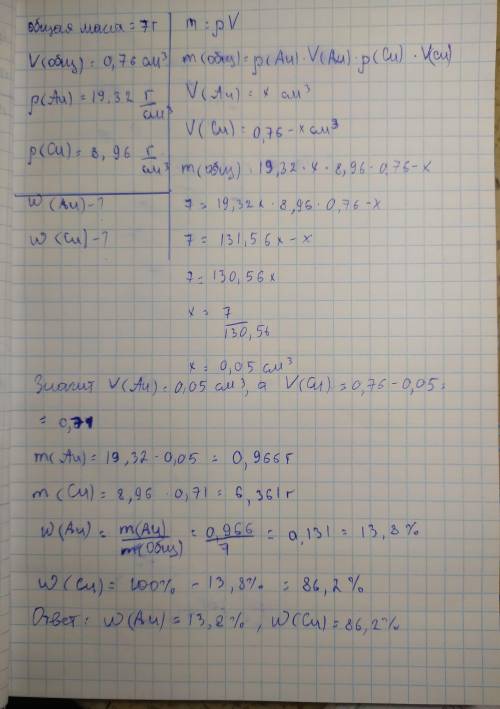 общая масса = 7г
V(общ) = 0,76 см³
ρ(Au) = 19,32 г/см³
ρ(Cu) = 8,96 г/см³
W(Au) - ?
W(Cu) - ?
m = ρV
m(общ) = ρ(Au) · V(Au) · ρ(Cu) · V(Cu)
V(Au) = x см³
V(Cu) = 0,76 - x см³
m(общ) = 19,32 · x · 8,96 · 0,76 - x
7 = 19,32x · 8,96 · 0,76 - x
7 = 131,56x - x
7 = 130,56x
x = 7/130,56
x = 0,05 см³
Значит V(Au) = 0,05 см³, а V(Cu) = 0,76 - 0,05 =
= 0,71
m(Au) = 19,32 · 0,05 = 0,966г
m(Cu) = 8,96 · 0,71 = 6,361г
W(Au) = m(Au)/m(общ) = 0,966/7 = 0,131 = 13,8%
W(Cu) = 100% - 13,8% = 86,2%
Ответ: W(Au) = 13,8%, W(Cu) = 86,2%